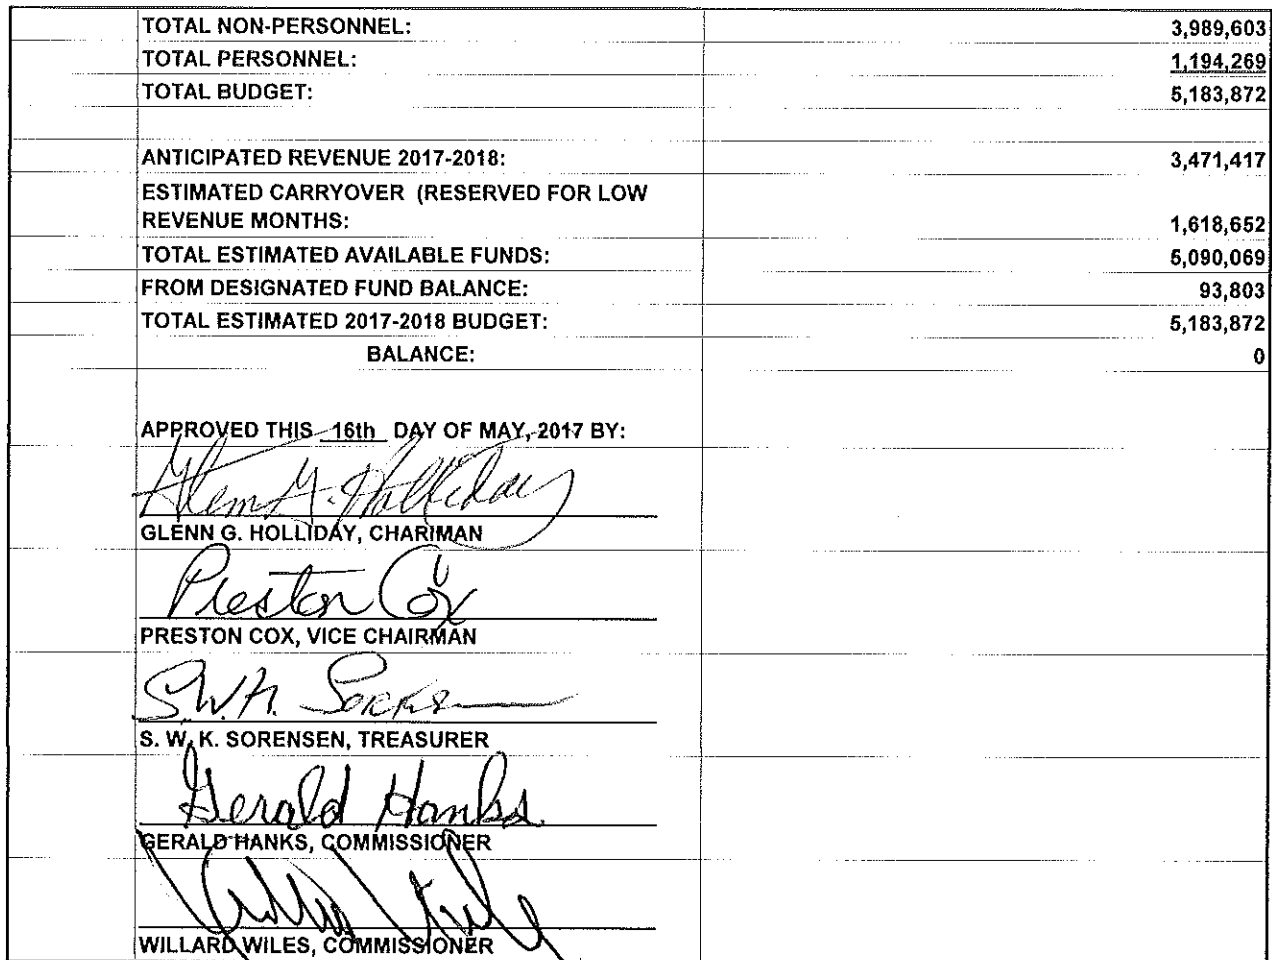 TOTAL NON-PERSONNEL: 3,989,603
TOTAL PERSONNEL: 1,194,269
TOTAL BUDGET: 5,183,872
ANTICIPATED REVENUE 2017-2018: 3,471,417
ESTIMATED CARRYOVER (RESERVED FOR LOW
REVENUE MONTHS: 1,618,652
TOTAL ESTIMATED AVAILABLE FUNDS: 5,090,069
FROM DESIGNATED FUND BALANCE: 93,803
TOTAL ESTIMATED 2017-2018 BUDGET: 5,183,872
BALANCE: 0
APPROVED THIS 16th DAY OF MAY, 2017 BY:
Glenn G. Holliday
GLENN G. HOLLIDAY, CHARIMAN
Preston Cox
PRESTON COX, VICE CHAIRMAN
S. W. K. SORENSEN, TREASURER
Gerald Hanks
GERALD HANKS, COMMISSIONER
WILLARD WILES, COMMISSIONER